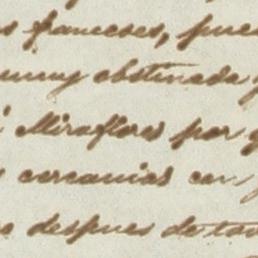 s franceses, pues
muy obstinada y
Miraflores por
cercanias con
despues de tan